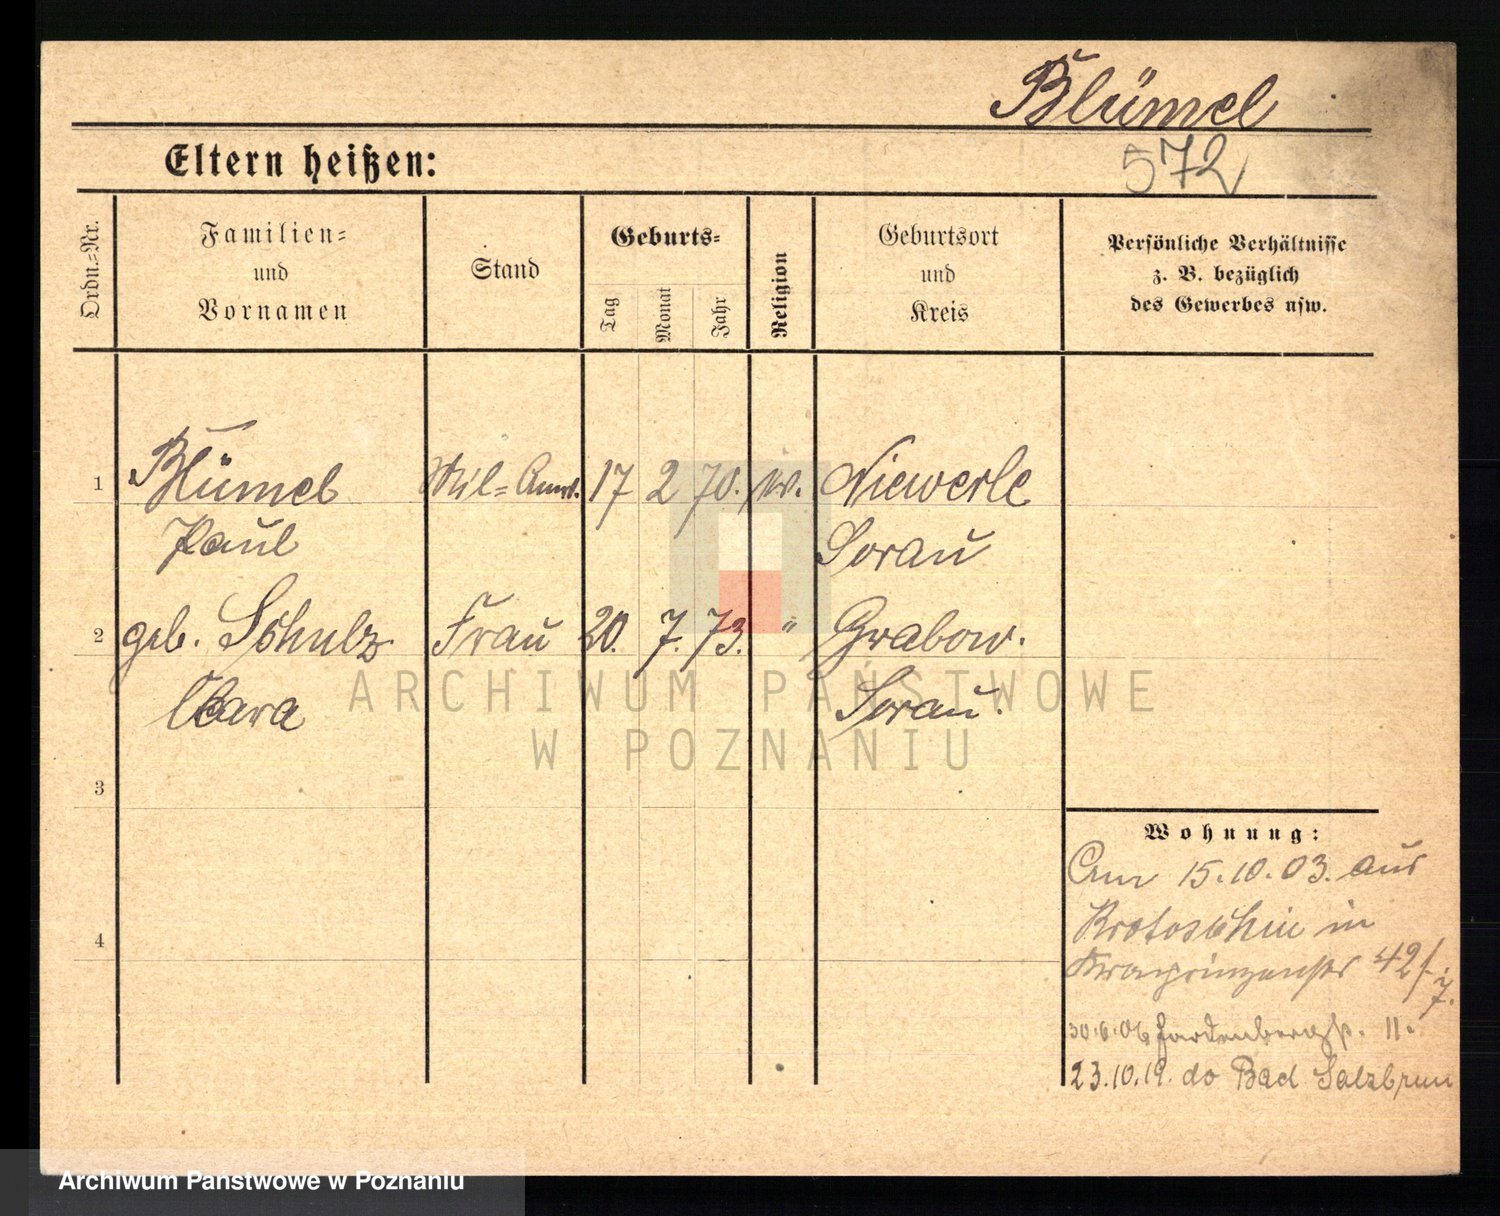 Blümel
572
Eltern heißen:
Ordn.-Nr.
Familien-
und
Vornamen
Stand
Geburts-
Tag
Monat
Jahr
Religion
Geburtsort
und
Kreis
Persönliche Verhältnisse
z. B. bezüglich
des Gewerbes usw.
1 Blümel Mil-Anw. 17 2 70. Niewerle
Paul Sorau
2 geb. Schulz Frau 20. 7. 73. " Grabow.
Clara Sorau.
3
4
Wohnung:
Am 15.10.03. aus
Krotoschin in
Kronprinzenstr 42/
7.
30.6.06 Hardenbergstr. 11.
23.10.19. do Bad Salzbrun
ARCHIWUM PAŃSTWOWE
W POZNANIU
Archiwum Państwowe w Poznaniu